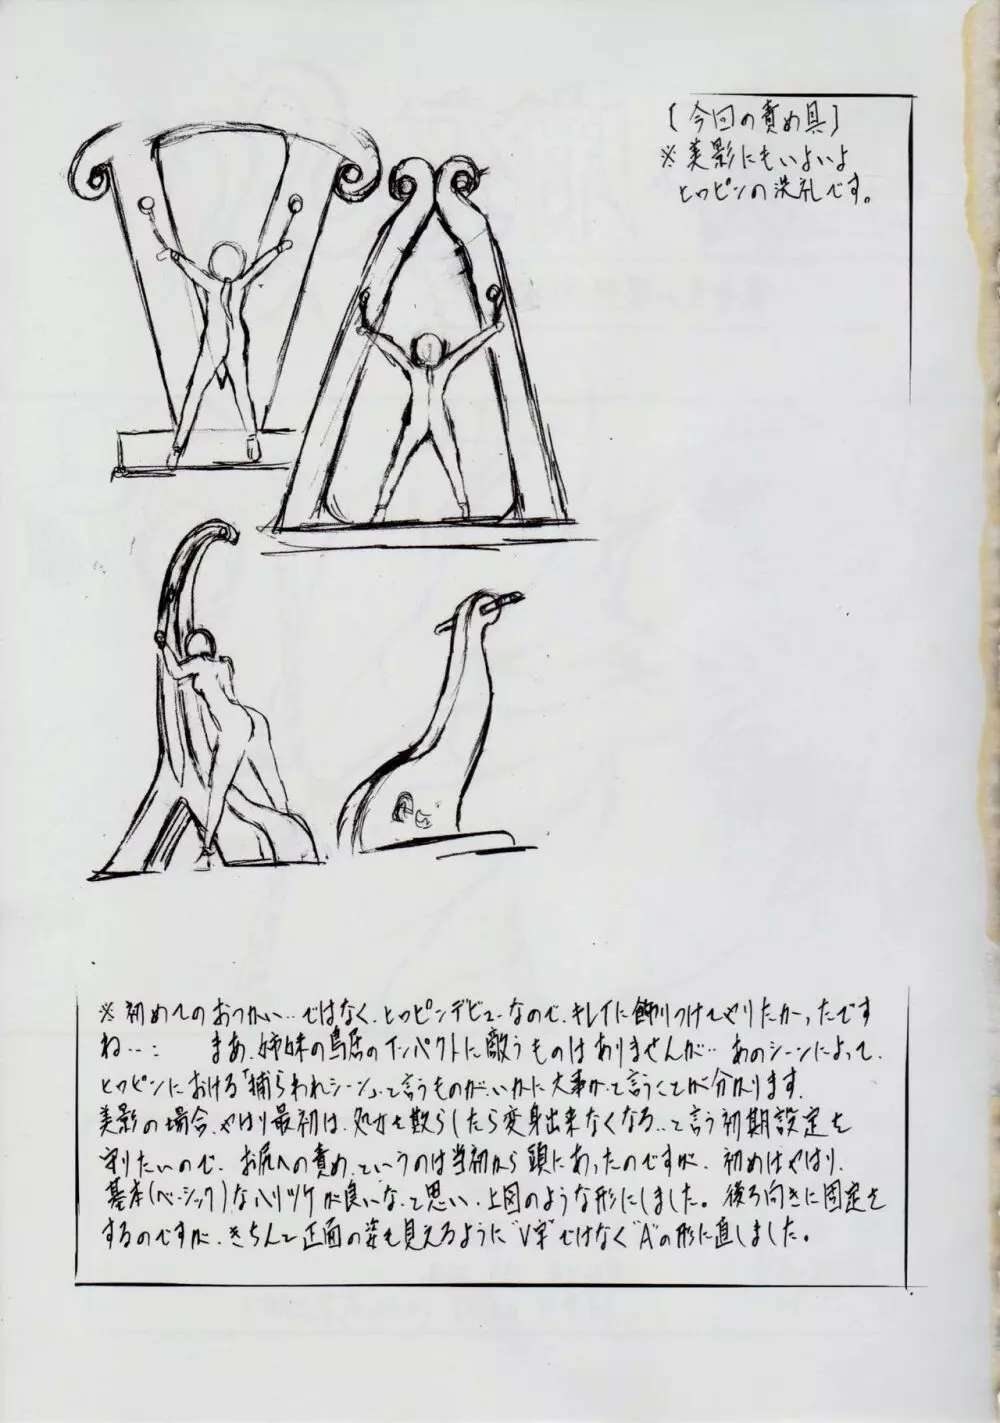 [今回の責め具]
※美影にもいよいよ
ヒロピンの洗礼です。
※初めてのおつかい…ではなく、ヒロピンデビューなので、キレイに飾りつけてやりたかったです
ね…: まあ、姉妹の鳥居のインパクトに敵うものはありませんが…あのシーンによって、
ヒロピンにおける「捕らわれシーン」と言うものが、いかに大事かと言うことが分かります。
美影の場合、やはり最初は、処女を散らしたら変身出来なくなる…と言う初期設定を
守りたいので、お尻への責め、というのは当初から頭にあったのですが、初めはやはり、
基本(ベーシック)なハリツケが良いな、と思い、上図のような形にしました。後ろ向きに固定を
するのですが、きちんと正面の姿も見えるように"V字"ではなく"A"の形に直しました。